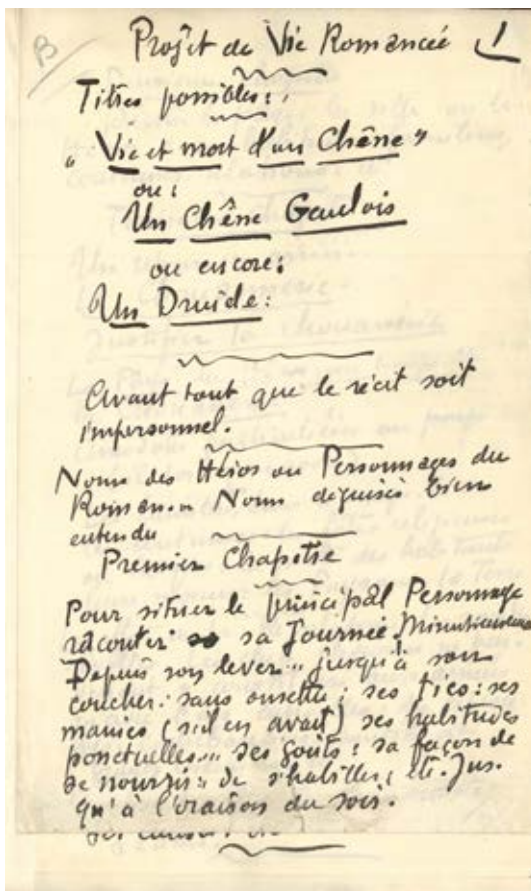 B
Projet de Vie Romancée 1
Titres possibles :
"Vie et mort d'un Chêne"
ou :
Un Chêne Gaulois
ou encore :
Un Druide :
Avant tout que le récit soit
impersonnel.
Noms des Héros ou Personnages du
Roman .. Noms déguisés bien
entendu
Premier Chapitre
Pour situer le principal Personnage
raconter sa Journée Minutieusement
Depuis son lever .. jusqu'à son
coucher : sans omettre : ses tics : ses
manies (s'il en avait) ses habitudes
ponctuelles ... ses goûts : sa façon de
se nourrir : de s'habiller, etc. Jus.
qu'à l'oraison du soir.